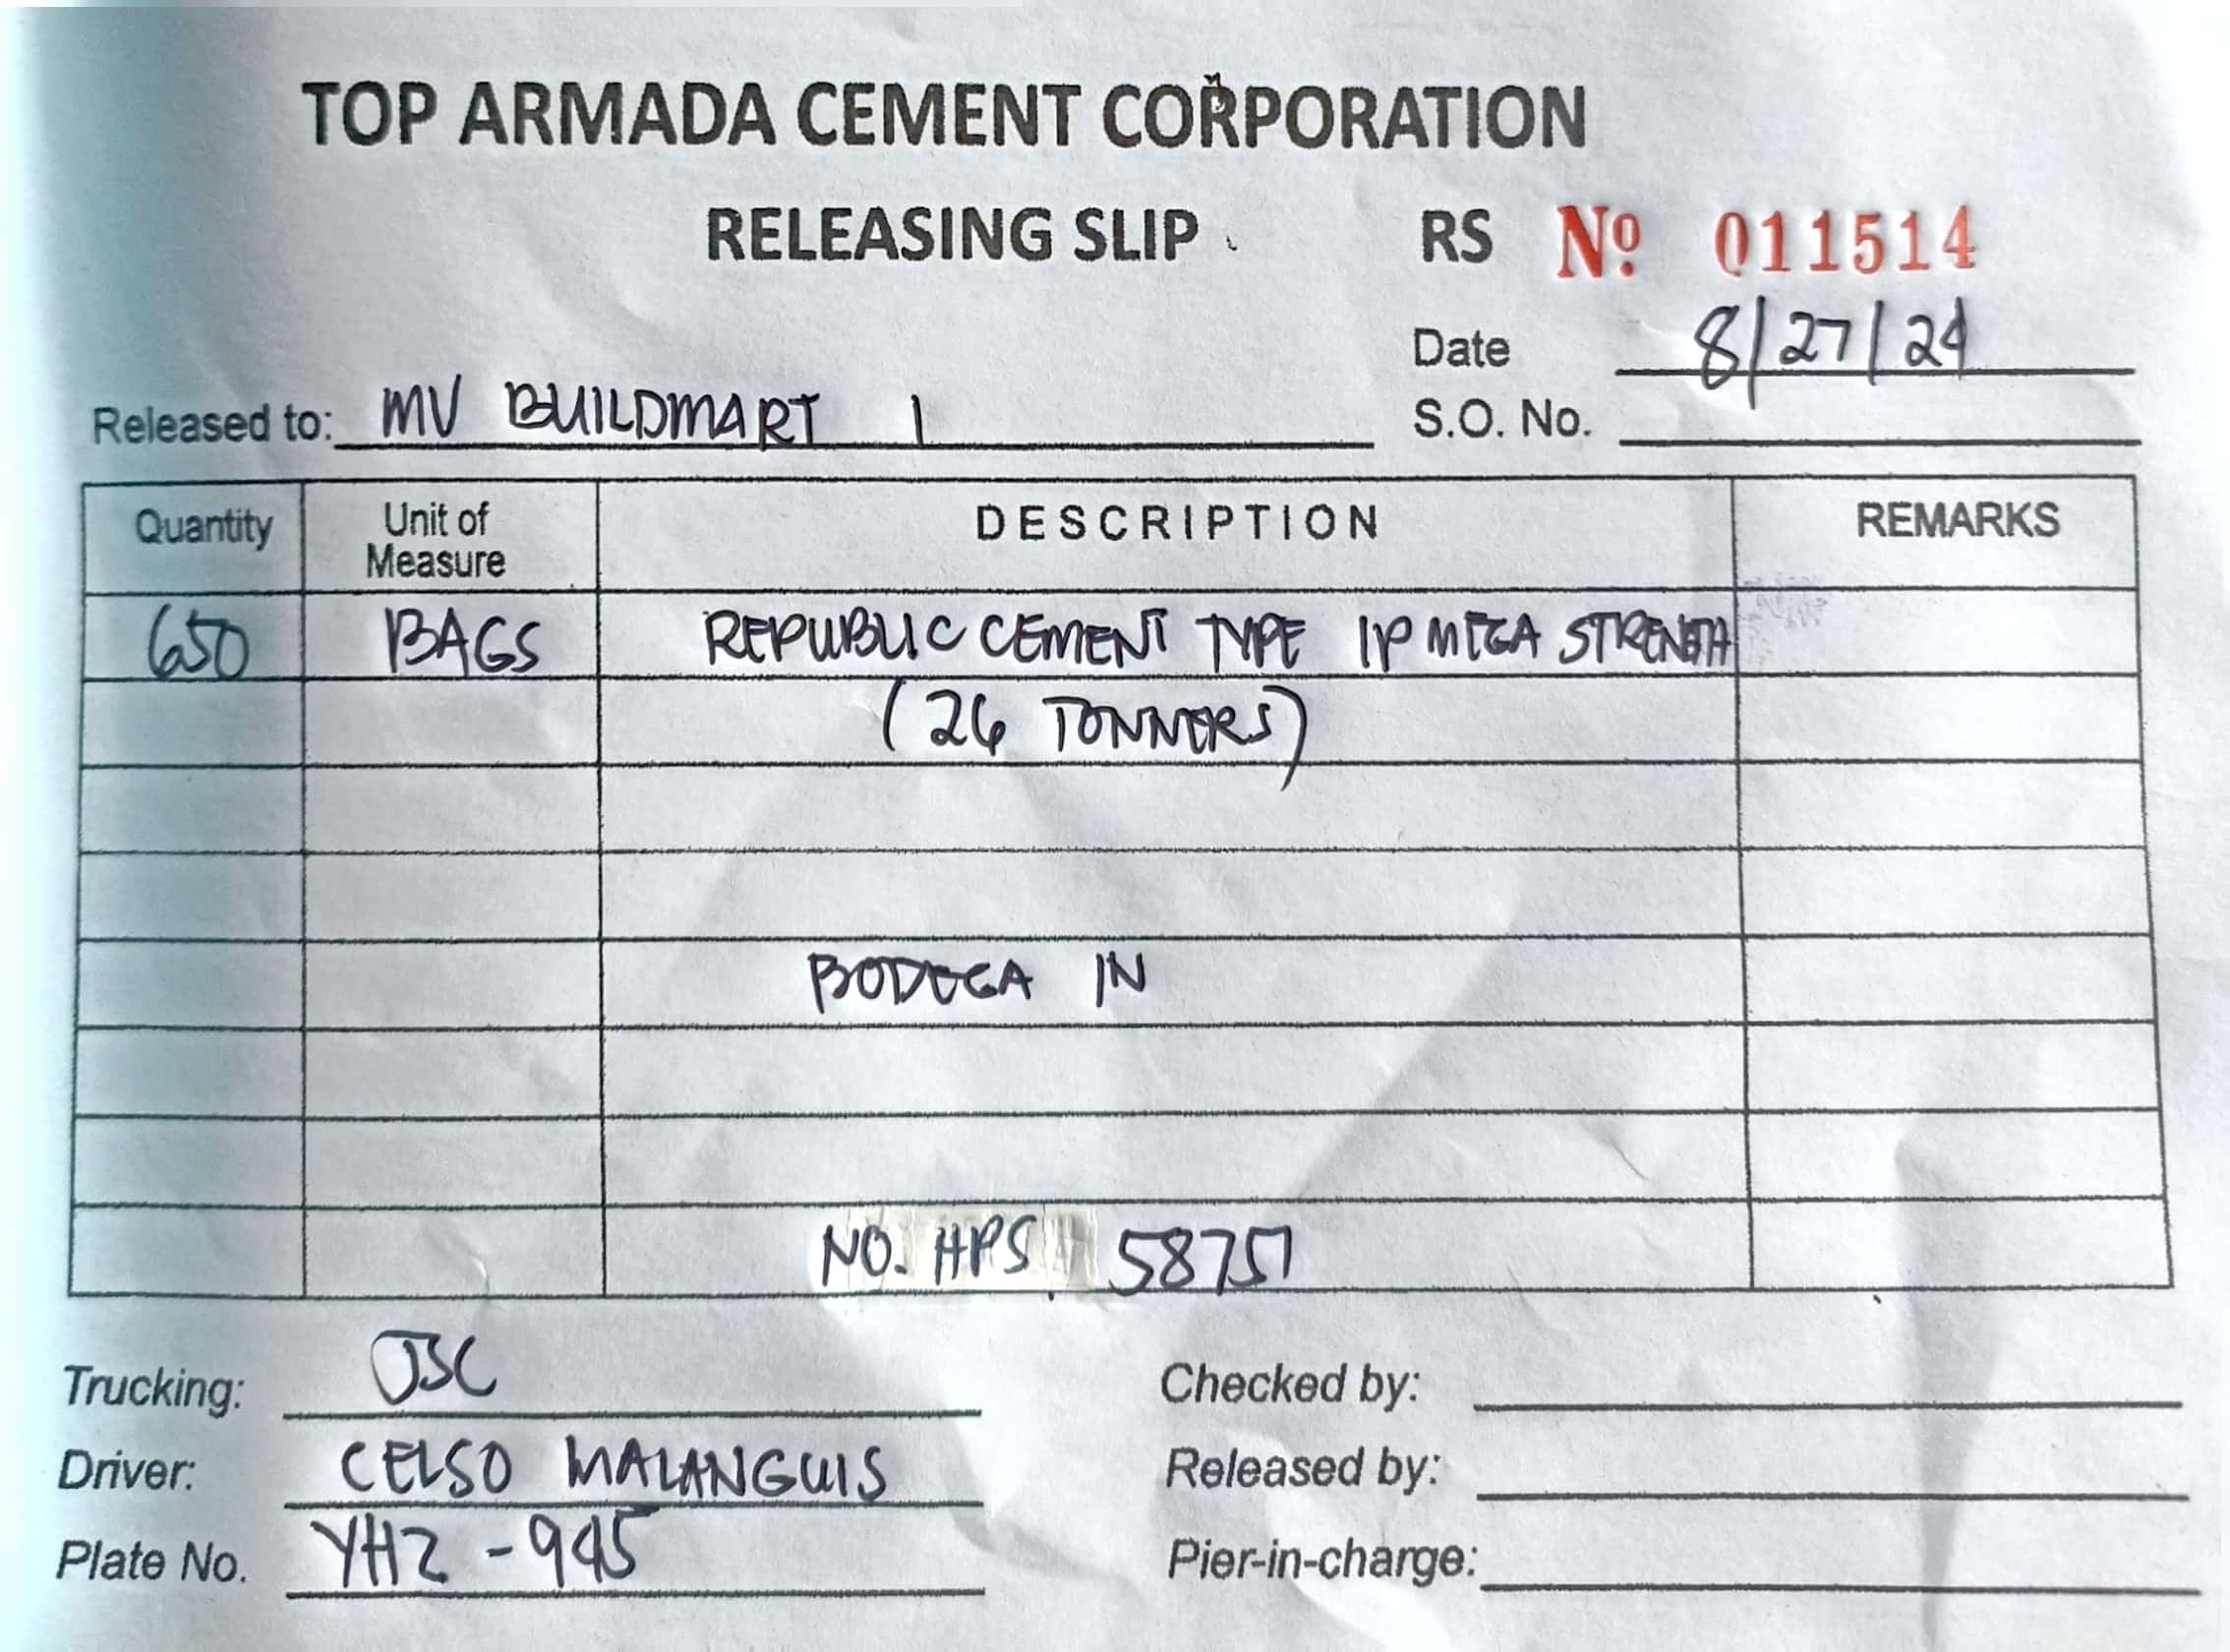 TOP ARMADA CEMENT CORPORATION
RELEASING SLIP RS Nº 011514
Date 8/27/24
Released to: MV BUILDMART 1 S.O. No.
Quantity Unit of Measure DESCRIPTION REMARKS
650 BAGS REPUBLIC CEMENT TYPE 1P MEGA STRENGTH
(26 TONNERS)
BODEGA IN
NO. HPS 58757
Trucking: JBC Checked by:
Driver: CELSO MALANGUIS Released by:
Plate No. YHZ -945 Pier-in-charge: